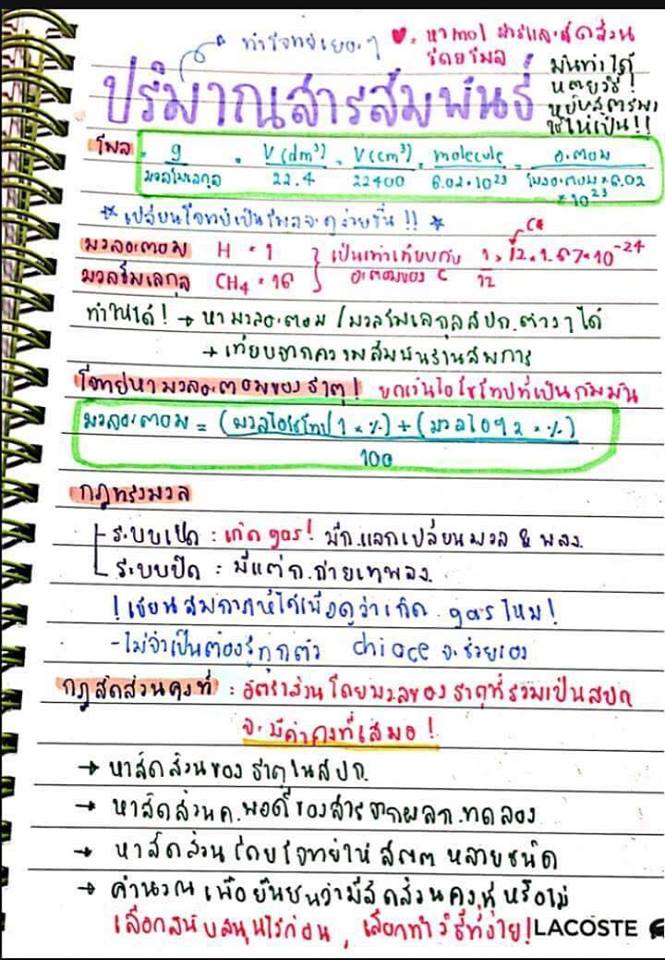 ทำโจทย์เยอะๆ
หา mol สารและสัดส่วน
โดยโมล
ปริมาณสารสัมพันธ์
มันทำได้
หลายวิธี!
หยิบสูตรมา
ใช้ให้เป็น!!
โมล = g = V(dm³) = V(cm³) = molecule = อะตอม
มวลโมเลกุล 22.4 22400 6.02×10²³ โมลอะตอม×6.02
×10²³
เปลี่ยนโจทย์เป็นโมลจะดูง่ายขึ้น!!
มวลอะตอม H = 1 } เป็นเท่าเทียบกับ 1 × 12×1.67×10⁻²⁴
มวลโมเลกุล CH₄ = 16 } อะตอมของ C 12
ทำให้ได้! → หามวลอะตอม/มวลโมเลกุลสปก.ต่างๆได้
→ เทียบจากความสัมพันธ์ผ่านสมการ
โจทย์หามวลอะตอมของธาตุ! ยกเว้นไอโซโทปที่เป็นกัมมัน
มวลอะตอม = (มวลไอโซโทป1 × %) + (มวลไอโซ2 × %)
100
กฎทรงมวล
ระบบเปิด : เกิด gas! มีก.แลกเปลี่ยนมวล & พลง.
ระบบปิด : มีแต่ก.ถ่ายเทพลง.
! เขียนสมการให้ได้เพื่อดูว่าเกิด gas ไหม!
-ไม่จำเป็นต้องรู้ทุกตัว chioce จะช่วยเอง
กฎสัดส่วนคงที่ : อัตราส่วนโดยมวลของธาตุที่รวมเป็นสปก
จะมีค่าคงที่เสมอ!
→ หาสัดส่วนของธาตุในสปก.
→ หาสัดส่วนค.พอดีของสารจากผลก.ทดลอง
→ หาสัดส่วนโดยโจทย์ให้ หลายชนิด
→ คำนวณเพื่อยืนยันว่ามีสัดส่วนคงที่หรือไม่
เลือกสนับสนุนไว้ก่อน, เลือกทำวิธีที่ง่าย! LACOSTE